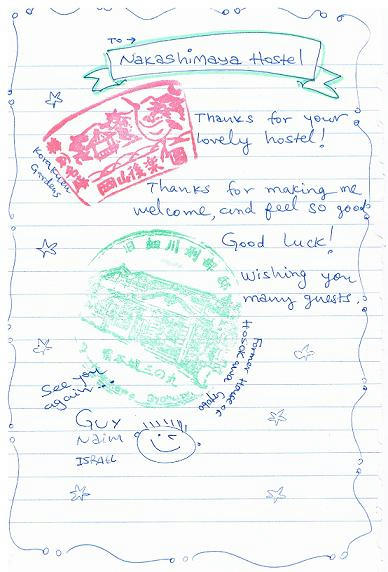 TO →
Nakashimaya Hostel
Thanks for your
lovely hostel!
岡山後楽園
Korakuen
Gardens
Thanks for making me
welcome, and feel so good
Good Luck!
旧細川刑部邸
Wishing you
many guests.
熊本城三の丸
Former House of
Hosokawa Gyobo
See you
again...
GUY
Naim
ISRAEL